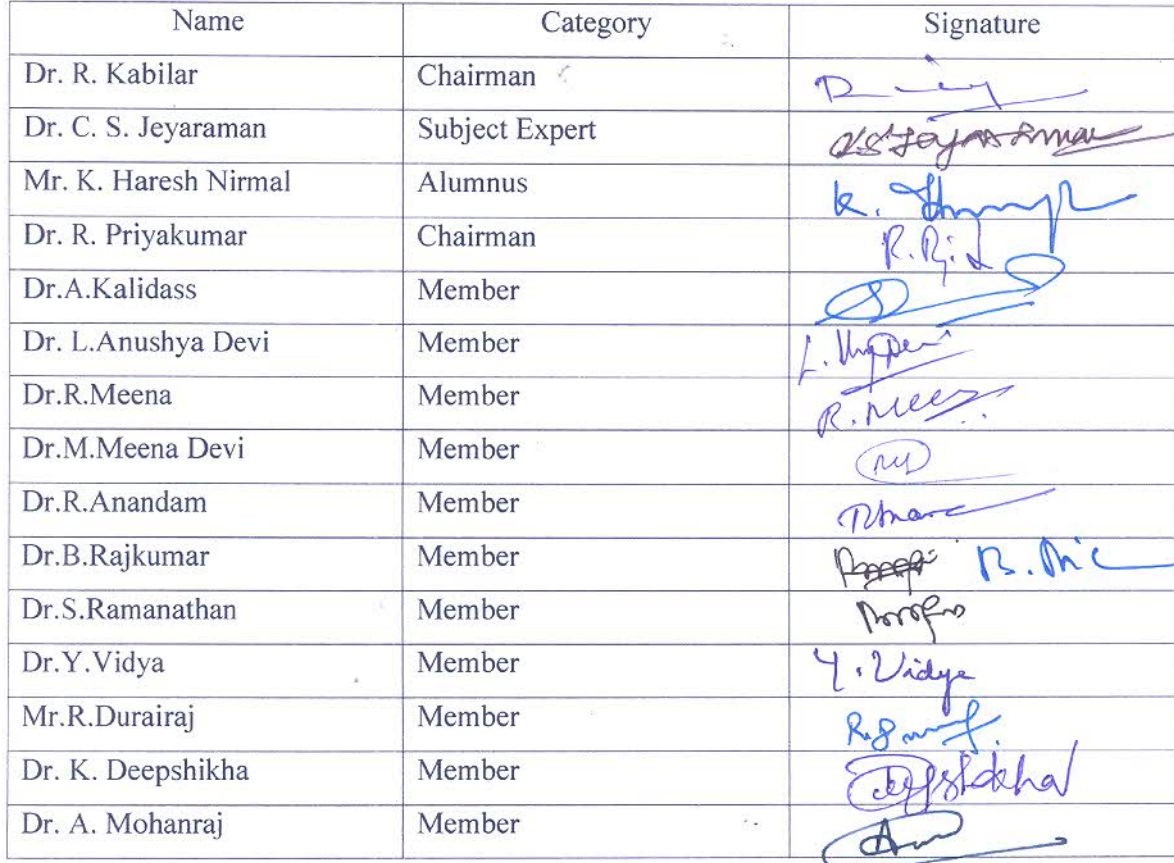 Name Category Signature
Dr. R. Kabilar Chairman
Dr. C. S. Jeyaraman Subject Expert
Mr. K. Haresh Nirmal Alumnus K.
Dr. R. Priyakumar Chairman
Dr.A.Kalidass Member
Dr. L.Anushya Devi Member
Dr.R.Meena Member R. Meena
Dr.M.Meena Devi Member
Dr.R.Anandam Member
Dr.B.Rajkumar Member
Dr.S.Ramanathan Member
Dr.Y.Vidya Member Y. Vidya
Mr.R.Durairaj Member
Dr. K. Deepshikha Member Deepshikha
Dr. A. Mohanraj Member